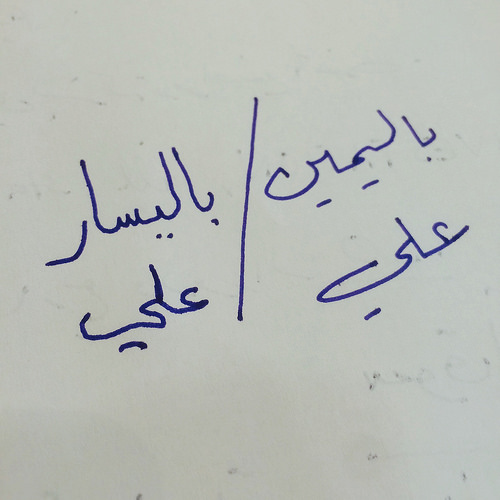 باليمين / باليسار
علي / علي